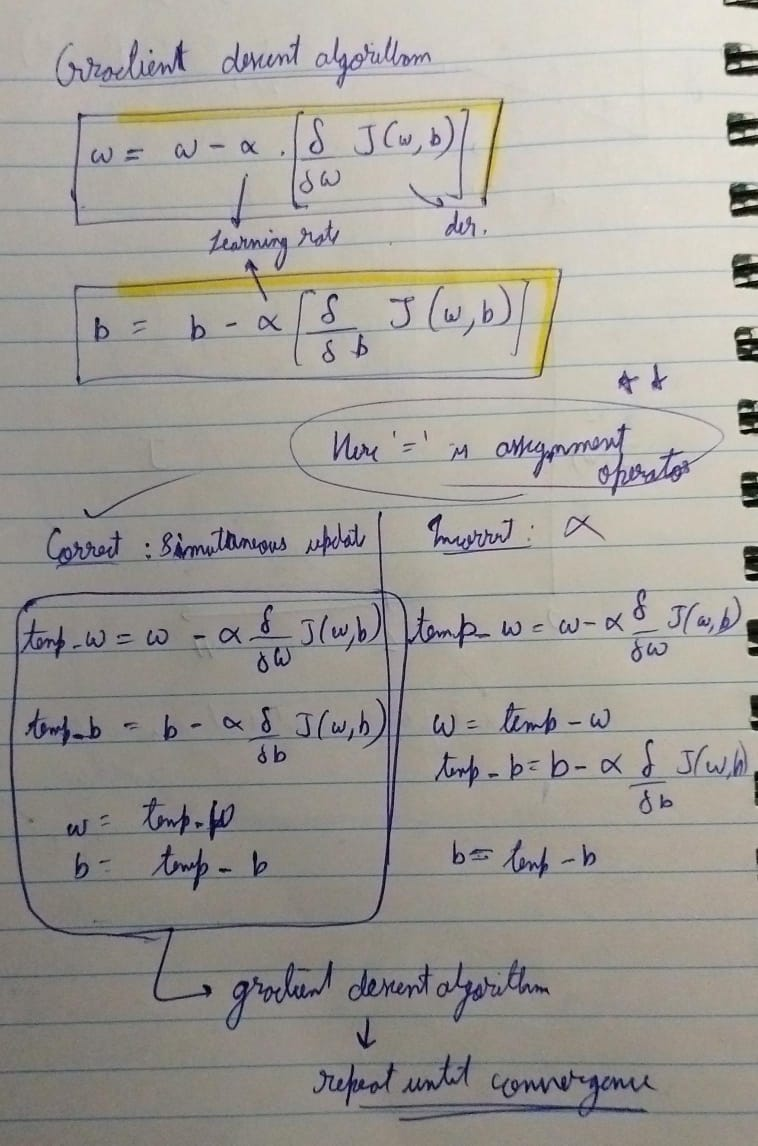 Gradient descent algorithm
w = w - α . [δ/δw J(w, b)]
Learning rate
der.
b = b - α [δ/δb J(w, b)]
Here '=' is assignment
operator
Correct : Simultaneous update
temp_w = w - α δ/δw J(w, b)
temp_b = b - α δ/δb J(w, b)
w = temp_w
b = temp_b
Incorrect :
temp_w = w - α δ/δw J(w, b)
w = temp_w
temp_b = b - α δ/δb J(w, b)
b = temp_b
gradient descent algorithm
repeat until convergence